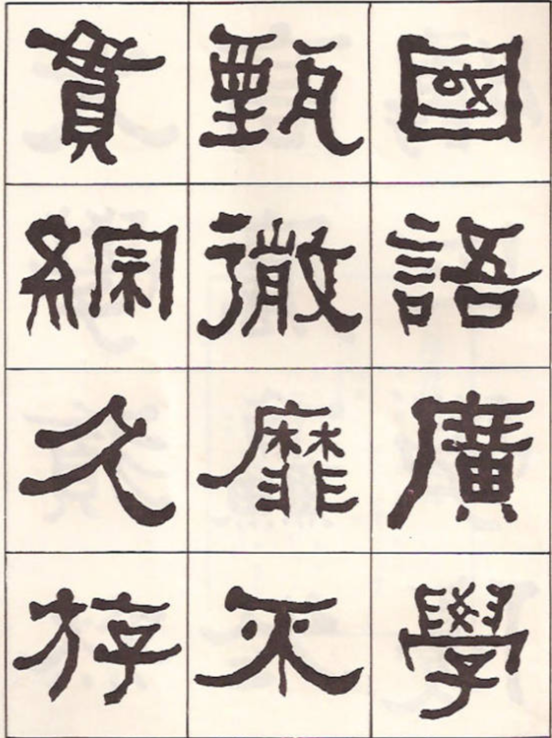 國語廣學
甄微靡不
貫綜久斿